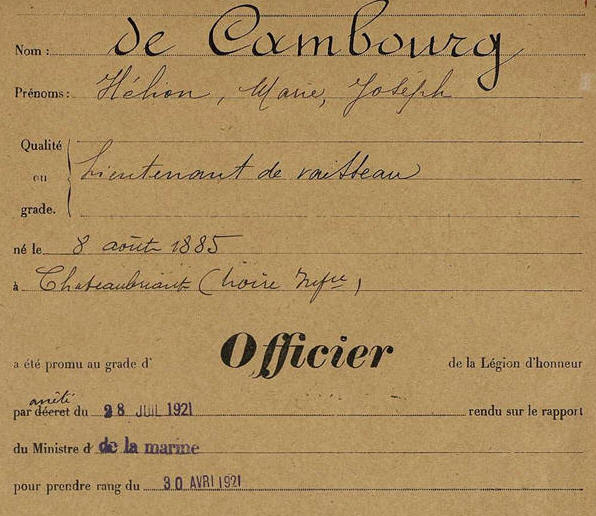 Nom : de Cambourg
Prénoms : Hélion, Marie, Joseph
Qualité
ou Lieutenant de vaisseau
grade.
né le 8 août 1885
à Chateaubriant (Loire Infre)
a été promu au grade d' Officier de la Légion d'honneur
arrêté
par décret du 28 JUIL 1921 rendu sur le rapport
du Ministre d de la marine
pour prendre rang du 30 AVRI 1921